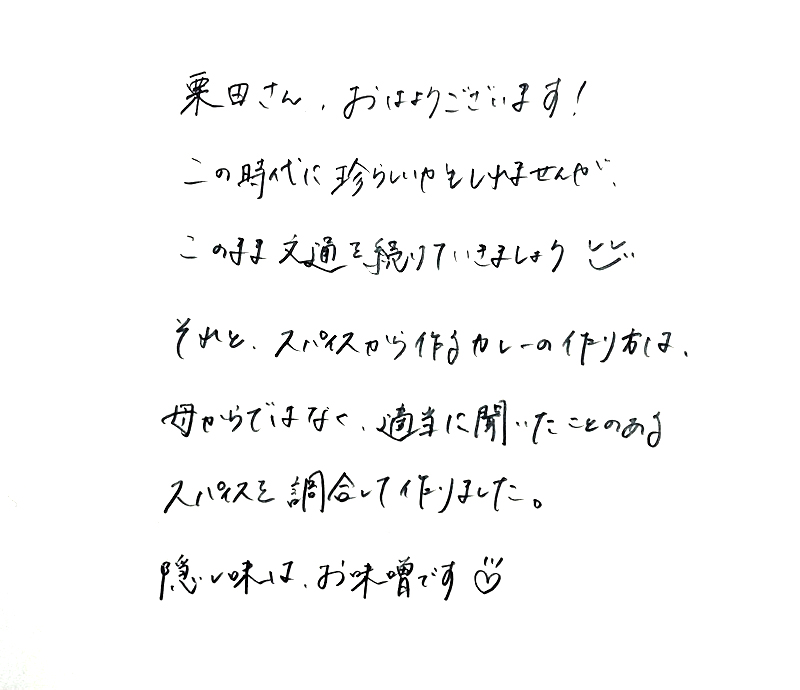 栗田さん、おはようございます!
この時代に珍らしいかもしれませんが、
このまま文通を続けていきましょう
それと、スパイスから作るカレーの作り方は、
母からではなく、適当に聞いたことのある
スパイスを調合して作りました。
隠し味は、お味噌です